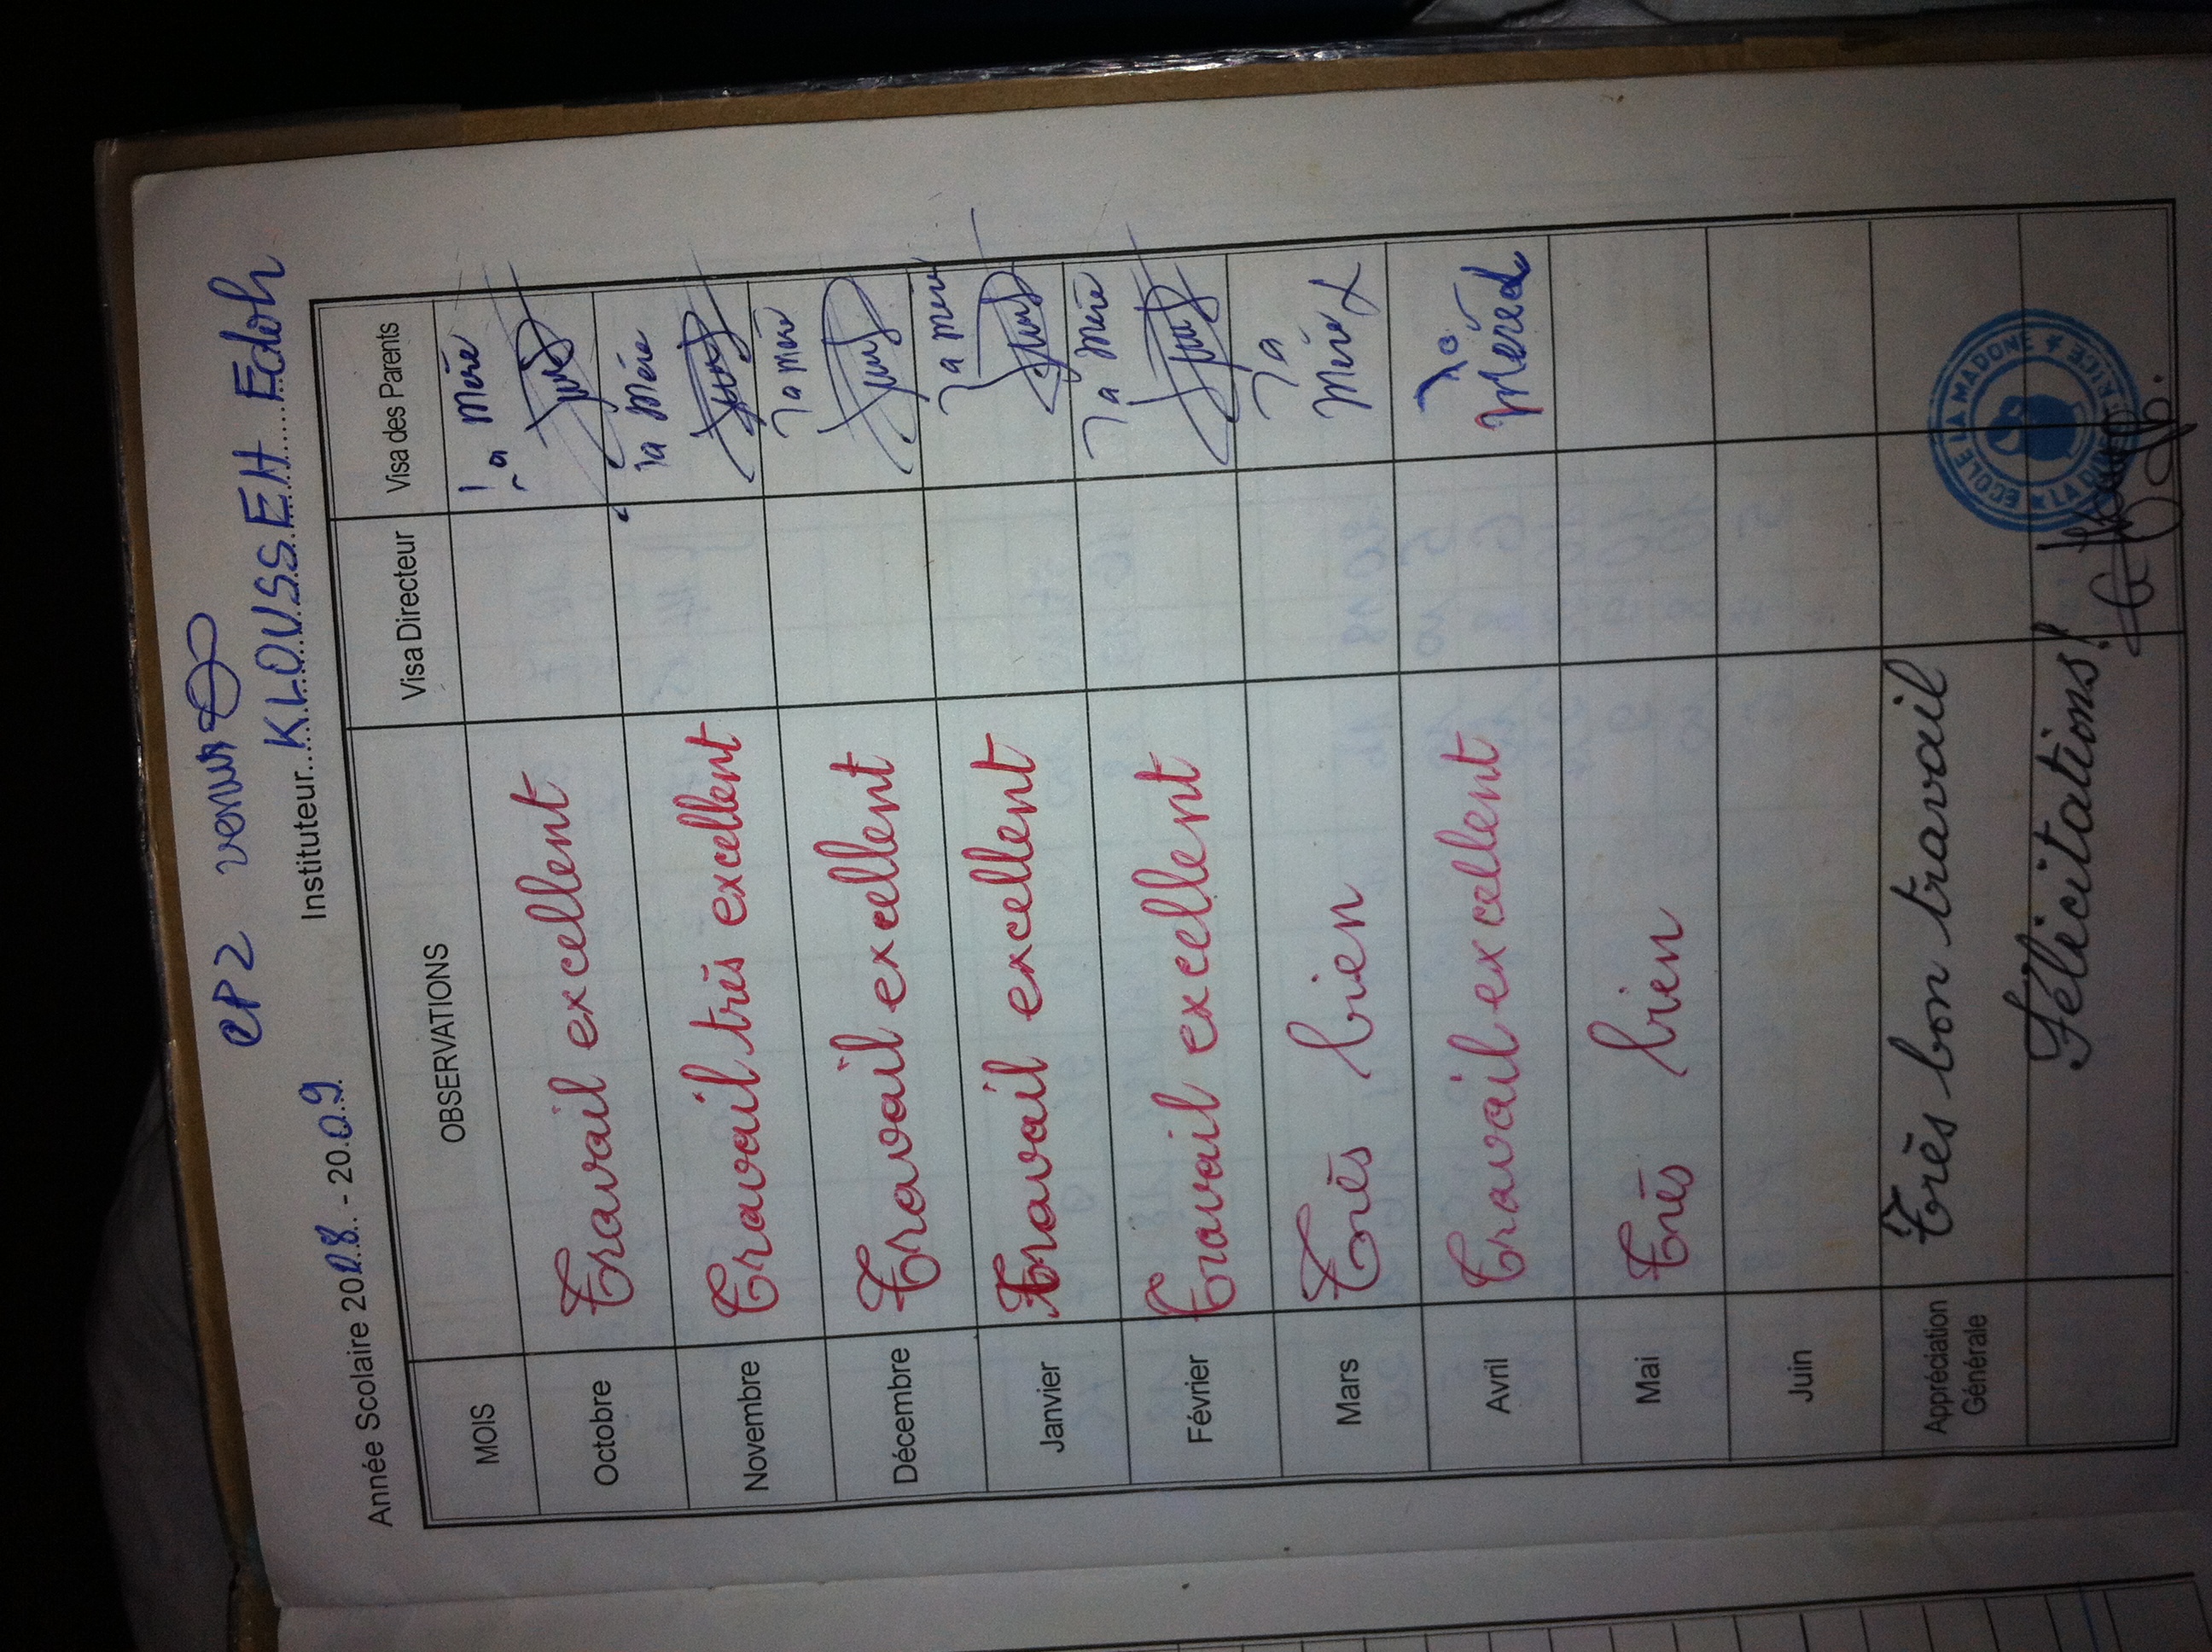 CP2 venus
Année Scolaire 2008 - 2009
Instituteur KLOUSSEH Edoh
MOIS OBSERVATIONS Visa Directeur Visa des Parents
Octobre Travail excellent la Mère
Novembre Travail très excellent la Mère
Décembre Travail excellent la mère
Janvier Travail excellent la mère
Février Travail excellent la Mère
Mars Très bien la
Mère
Avril Travail excellent la
Mère
Mai Très bien
Juin
Appréciation
Générale
Très bon travail
Félicitations!
ECOLE LA MADONE
LA DIRECTRICE